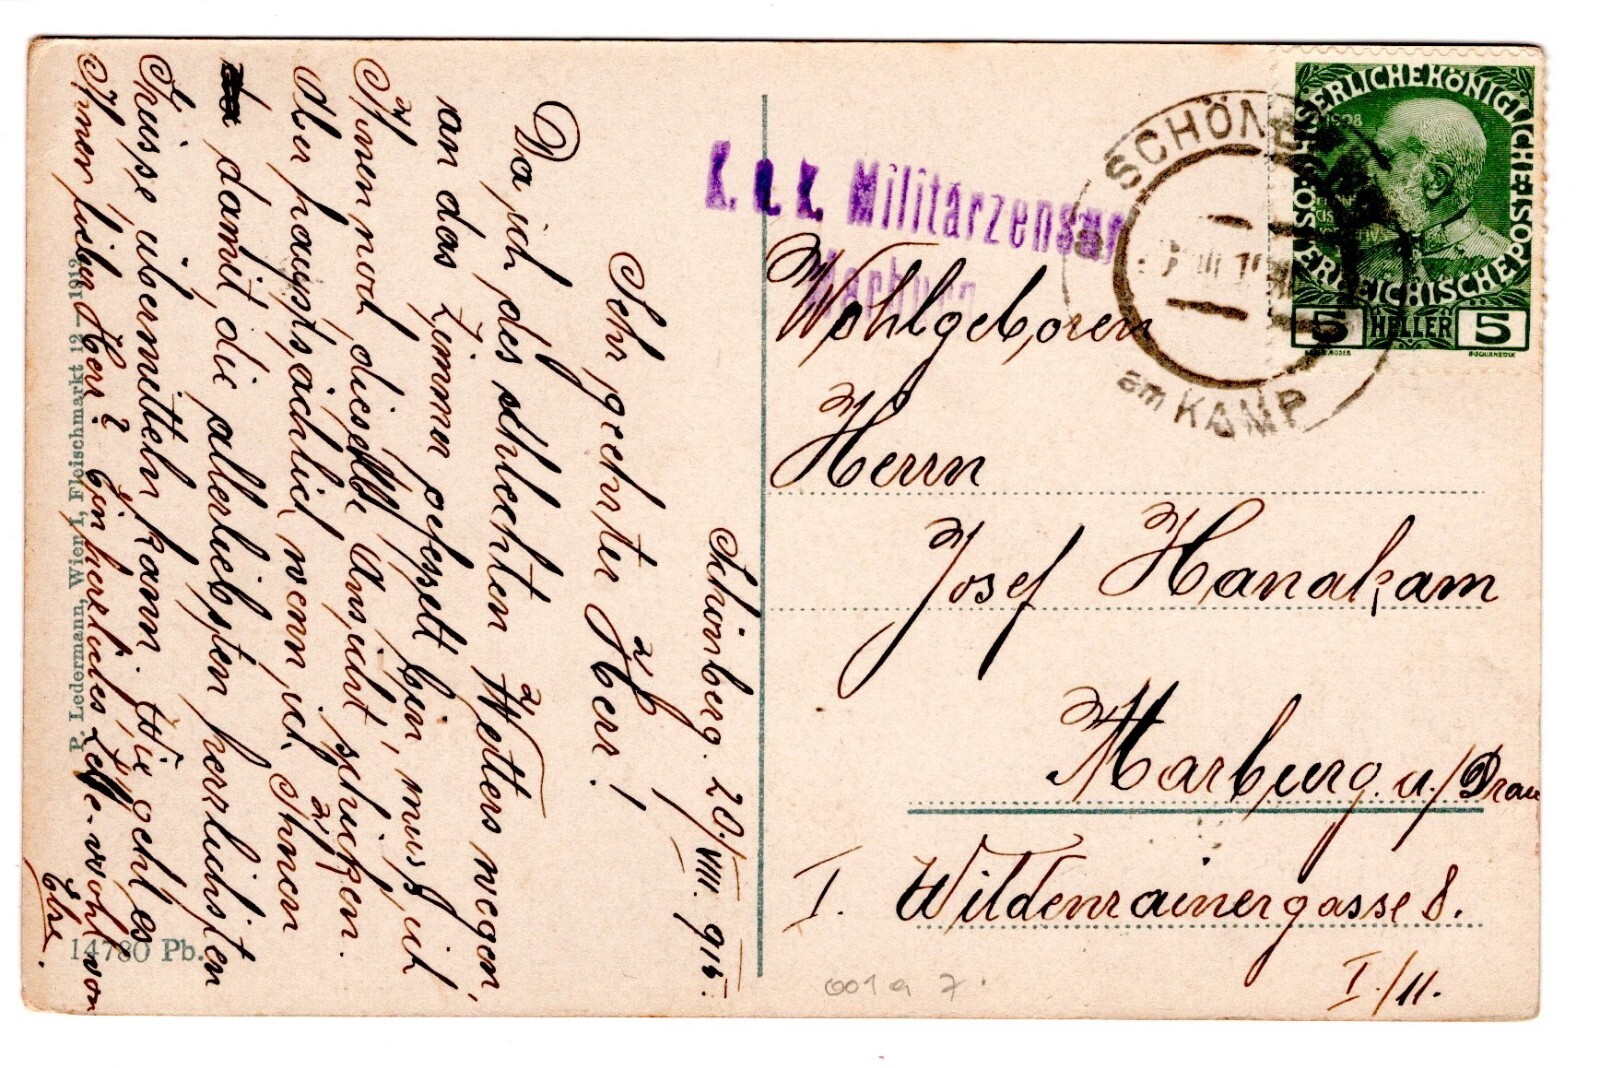 Schönberg. 20./VIII. 915.
Sehr geehrter Herr!
Da ich des schlechten Wetters wegen,
an das Zimmer gefesselt bin, muß ich
Ihnen noch dieselbe Ansicht schicken.
Aber hauptsächlich wenn ich Ihnen
damit die allerliebsten herrlichsten
Grüsse übermitteln kann. Wie geht es
Ihnen lieber Herr? Ein herzliches Lebe-wohl von
Else.
P. Ledermann, Wien I, Fleischmarkt 12 - 1912
14780 Pb.
K. u. K. Militärzensur
Marburg
SCHÖNBERG
am KAMP
KAISERLICHE KÖNIGLICHE ÖSTERREICHISCHE POST
1908
5 HELLER 5
Wohlgeboren
Herrn
Josef Hanakam
Marburg. a./Drau
I. Wildenrainergasse 8.
I./11.
001a 7.